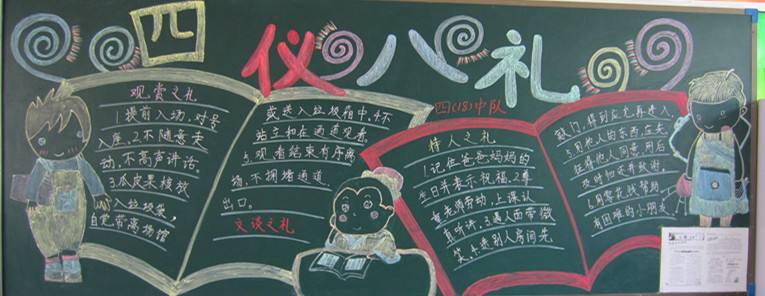 四仪八礼
观赏之礼
1提前入场,对号
入座,2不随意走
动,不高声讲话。
3瓜皮果核放
入垃圾袋,
自觉带离场馆
或送入垃圾箱中,4不
站立和在通道观看。
5观看结束有序离
场,不拥堵通道
出口。
文谈之礼
四(18)中队
待人之礼
1记住爸爸妈妈的
生日并表示祝福,2尊
重老师劳动,上课认
真听讲,3遇人面带微
笑,4进别人房间先
敲门,得到应允再进入,
5用他人的东西应先
征得他人同意,用后
及时归还并致谢,
6用零花钱帮助
有困难的小朋友